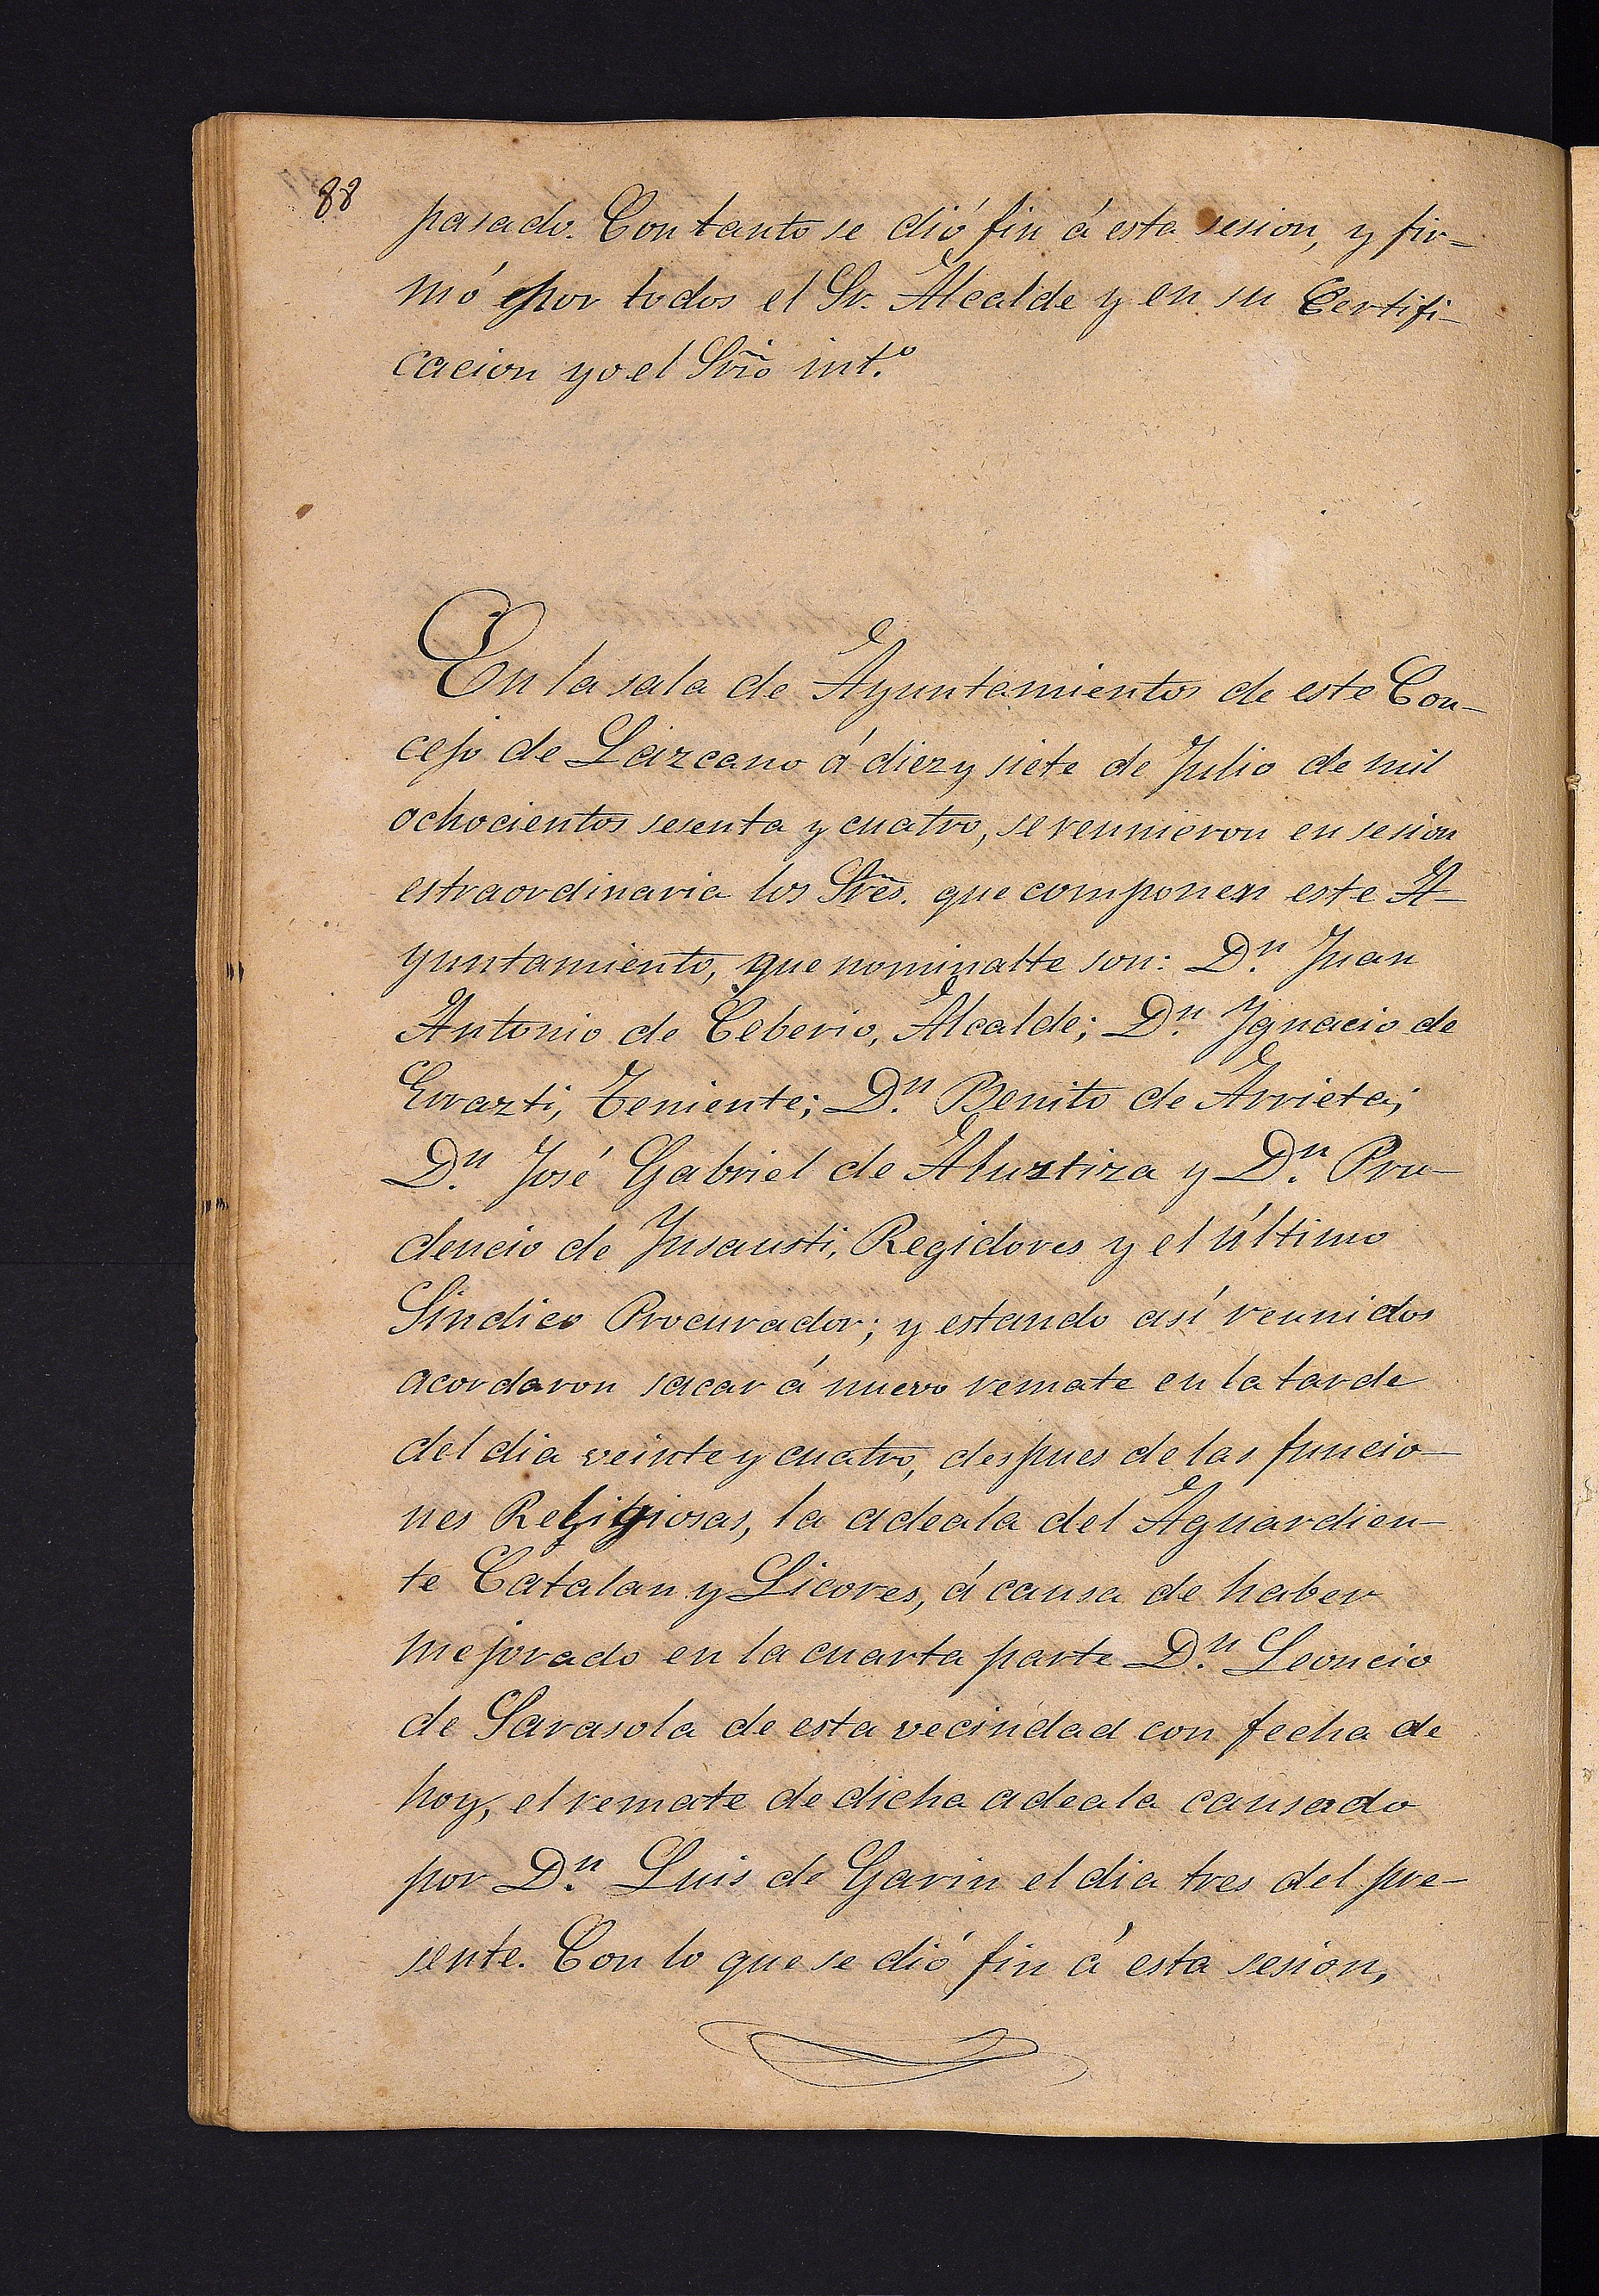 88
pasado. Con tanto se dió fin á esta sesion, y fir-
mó por todos el Sr. Alcalde y en su Certifi-
cacion yo el Srio int.º
En la sala de Ayuntamientos de este Con-
cejo de Lazcano á diez y siete de Julio de mil
ochocientos sesenta y cuatro, se reunieron en sesion
estraordinaria los Sres. que componen este A-
yuntamiento, que nominalte son: D.n Juan
Antonio de Ceberio, Alcalde; D.n Ygnacio de
Errazti, Teniente; D.n Benito de Arrieta;
D.n José Gabriel de Aluztiza y D.n Pru-
dencio de Ynsausti, Regidores y el último
Síndico Procurador; y estando así reunidos
acordaron sacar á nuevo remate en la tarde
del dia veinte y cuatro, despues de las funcio-
nes Religiosas, la adeala del Aguardien-
te Catalan y Licores, á causa de haber
mejorado en la cuarta parte D.n Leoncio
de Sarasola de esta vecindad con fecha de
hoy, el remate de dicha adeala causado
por D.n Luis de Garin el dia tres del pre-
sente. Con lo que se dió fin á esta sesion,